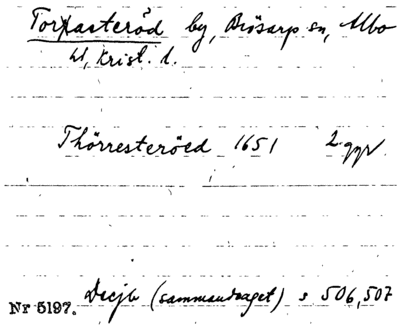 Torpasteröd by, Brösarp sn, Albo
hd, Krist. l.
Thörresteröed 1651 2 ggr.
Decjb (sammandraget) s 506,507
Nr 5197.